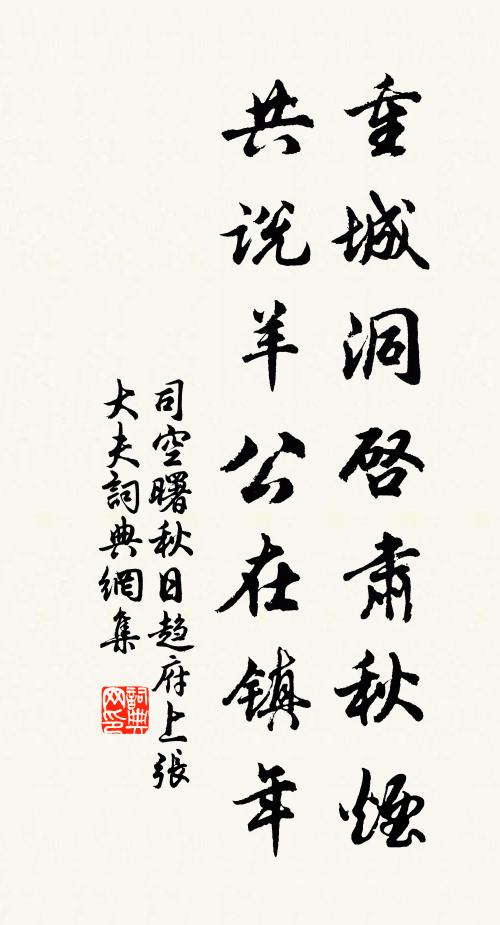 重城洞啓肅秋煙
共说羊公在镇年
司空曙秋日趨府上張
大夫詞典網集
詞典网印